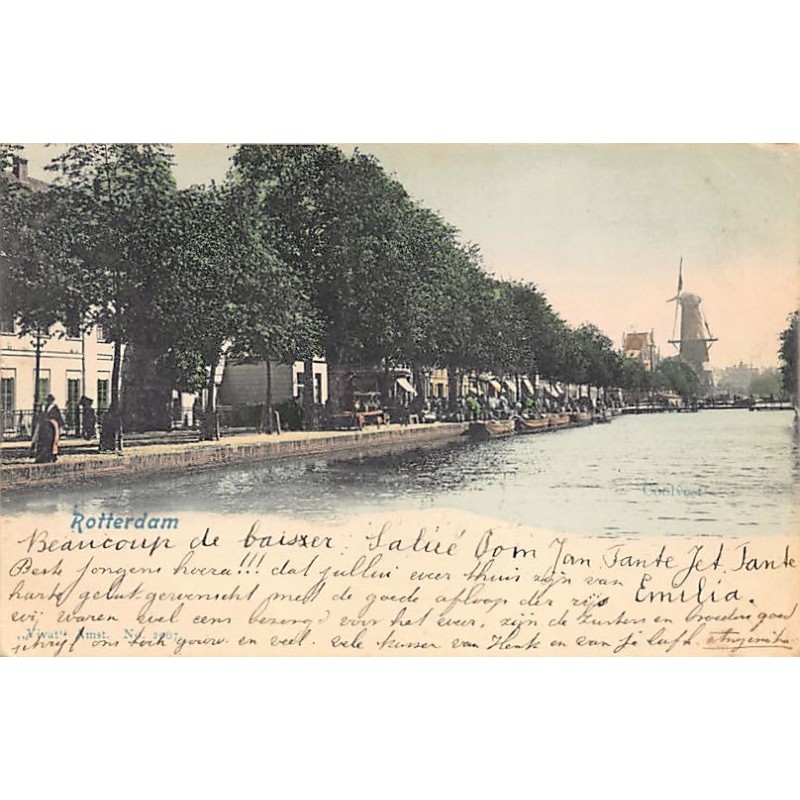 Coolvest
Rotterdam
Beaucoup de baiszer. Salué Oom Jan. Tante Jet. Tante
Beste jongens hoera!!! dat jullui weer thuis zijn van
harte geluk gewenscht met de goede afloop der zijs Emilia.
wij waren wel eens bezorgd voor het weer, zijn de zusters en broeders goed
„Vivat" Amst. No. 2067
schrijf ons toch gouw. en veel. vele kussen van Henk en van je liefh.